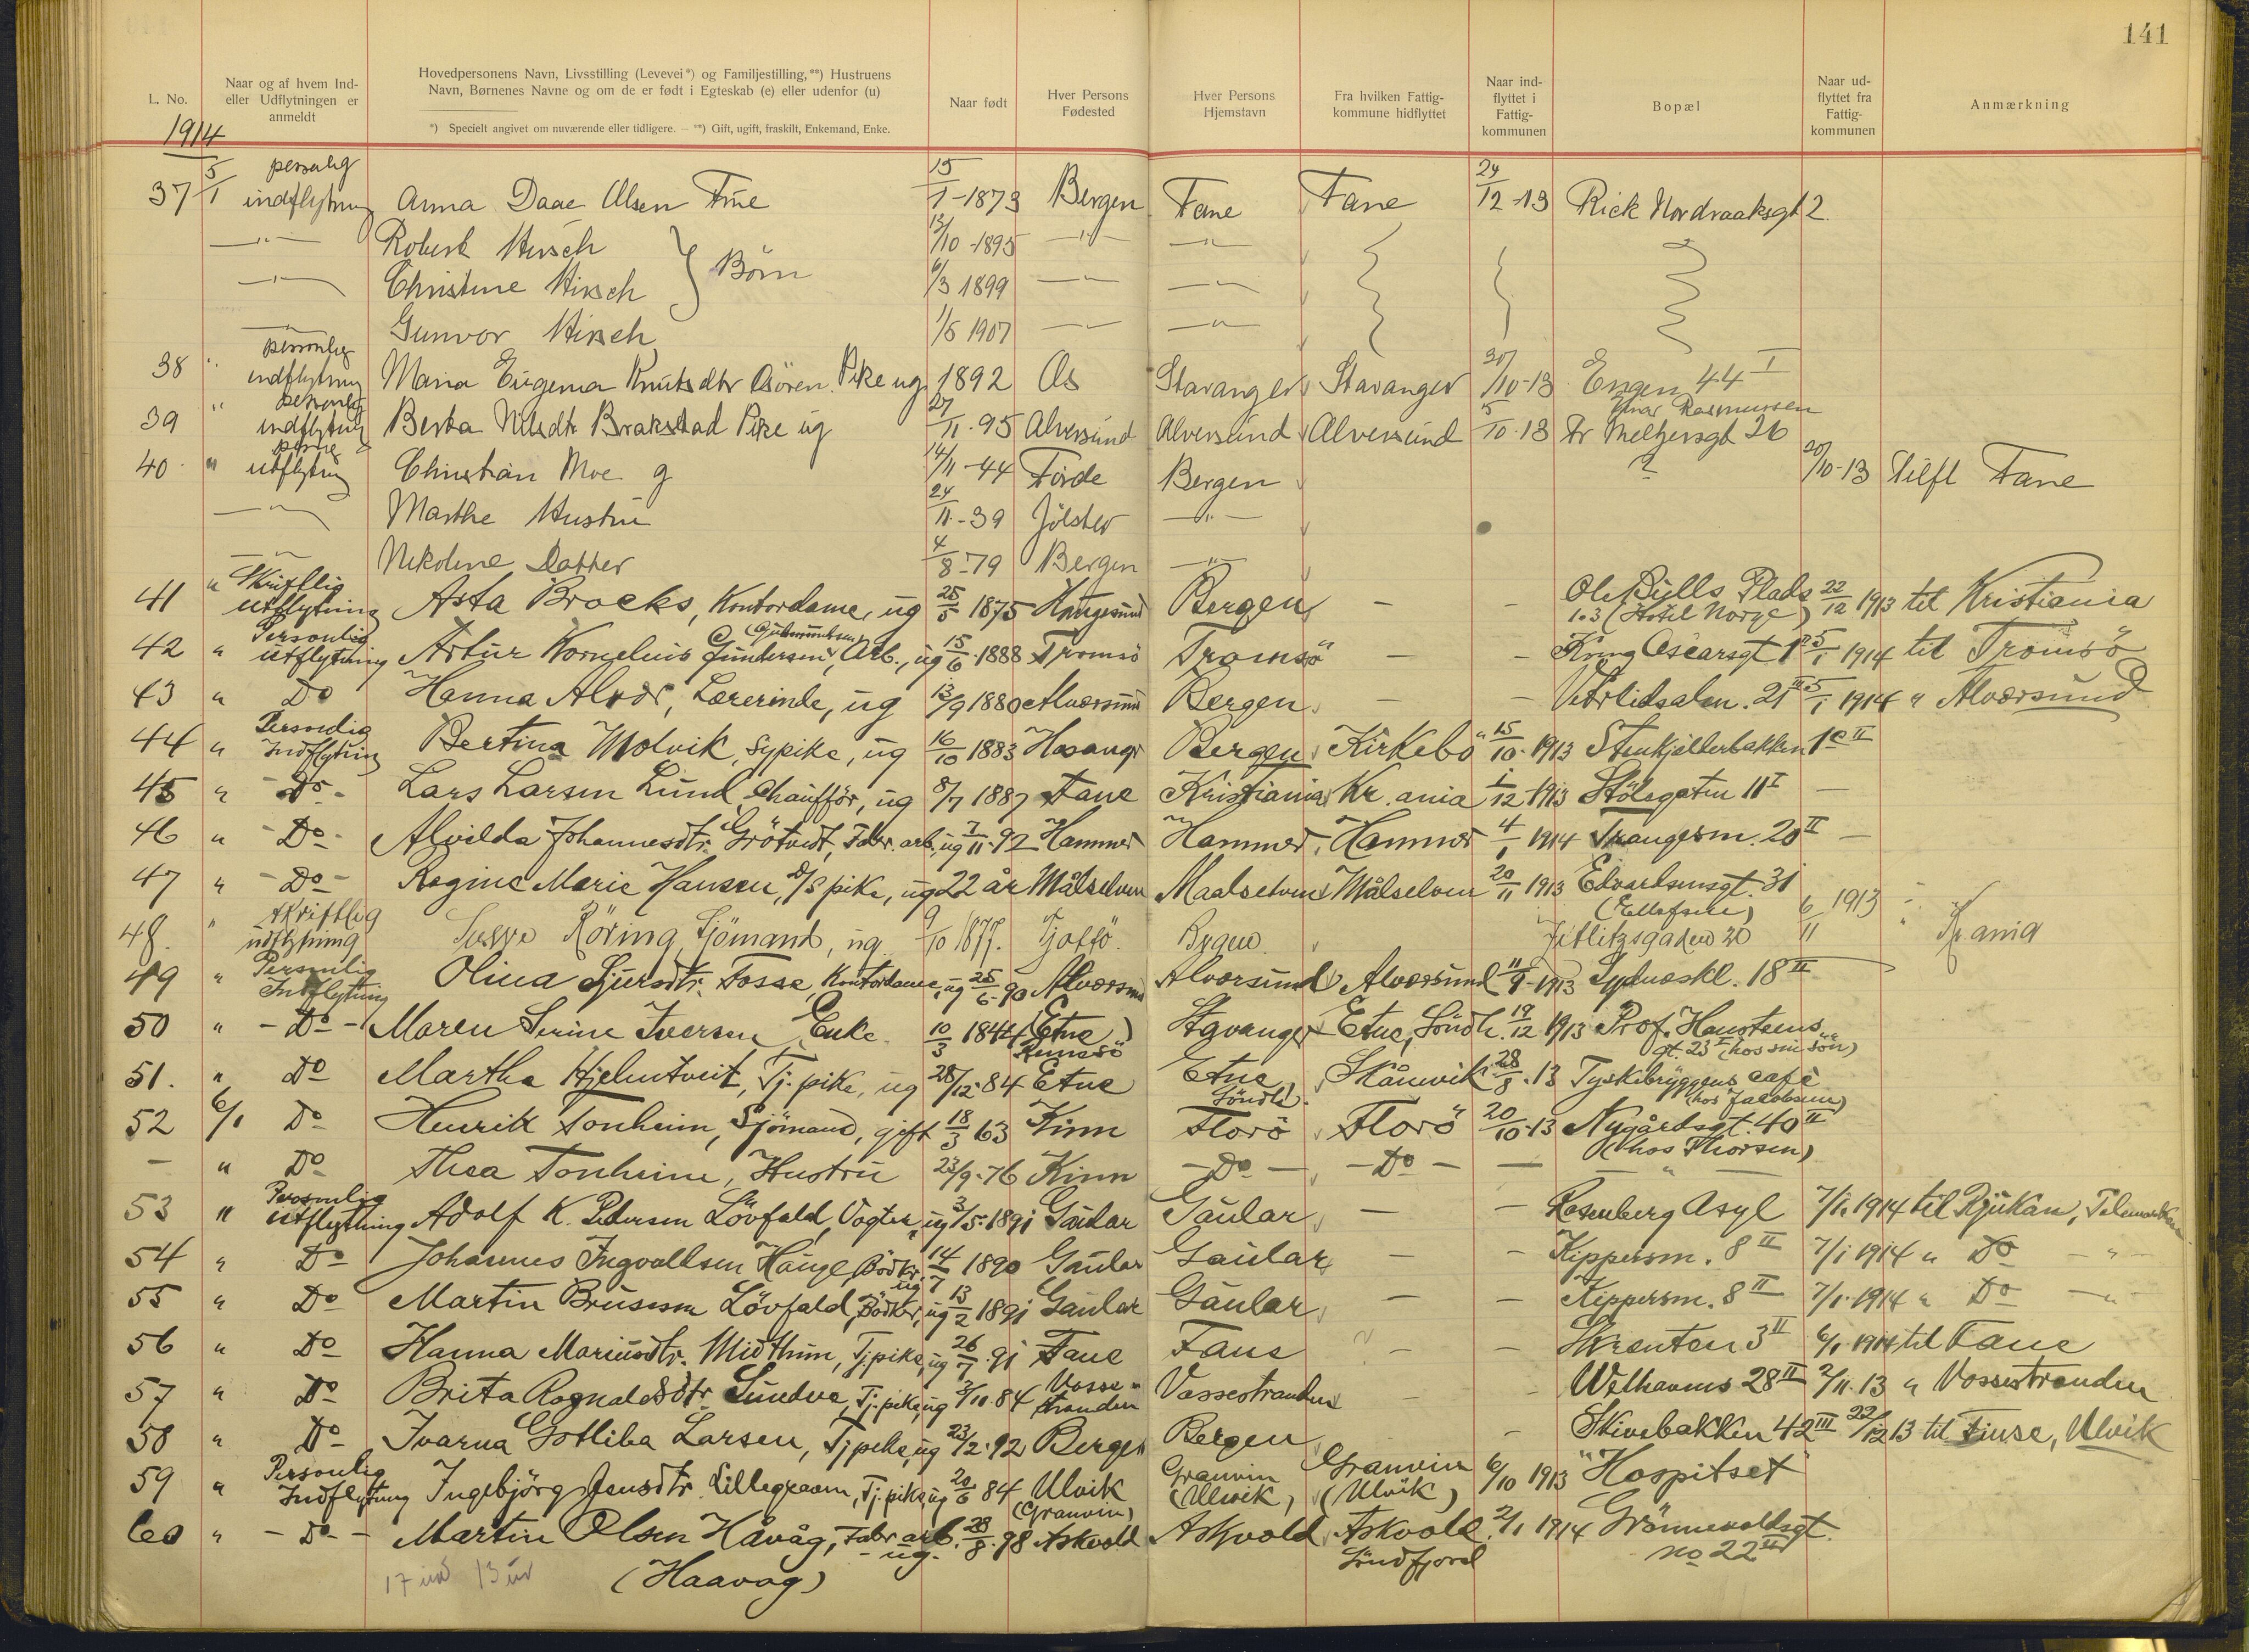 141
L. No.
Naar og af hvem Ind- eller Udflytningen er anmeldt
Hovedpersonens Navn, Livsstilling (Levevei*) og Familjestilling,**) Hustruens Navn, Børnenes Navne og om de er født i Egteskab (e) eller udenfor (u)
*) Specielt angivet om nuværende eller tidligere. — **) Gift, ugift, fraskilt, Enkemand, Enke.
Naar født
Hver Persons Fødested
Hver Persons Hjemstavn
Fra hvilken Fattig- kommune hidflyttet
Naar ind- flyttet i Fattig- kommunen
Bopæl
Naar ud- flyttet fra Fattig- kommunen
Anmærkning
1914
37 5/1 personlig indflytning Anna Daae Olsen Frue 15/1-1873 Bergen Fane Fane 24/12-13 Rick Nordraaksgt 2.
—"— Robert Hirsch } Børn 13/10-1895 —"— —"—
—"— Christine Hirsch 6/3 1899 —"— —"—
—"— Gunvor Hirsch 1/5 1907 —"— —"—
38 " personlig indflytning Maria Eugenia Knutsdtr Pike ug. 1892 Os Stavanger Stavanger 30/10-13 Engen 44 I
39 " personlig indflytning Berta Nilsdtr Brakstad Pike ug 27/11-95 Alversund Alversund Alversund 5/10-13 Einar Rasmussen Fr Meltzersgt 26
40 " utflytning Christian Moe g 14/11-44 Förde Bergen ? 20/10-13 Tilfl Fane
—"— Marthe Hustru 24/11-39 Jölster —"—
—"— Nikoline Datter 4/8-79 Bergen —"—
41 " Skriftlig utflytning Asta Brocks, Kontordame, ug 25/5 1875 Haugesund Bergen — — Ole Bulls Plads 1.3 (Hotel Norge) 22/12 1913 til Kristiania
42 " Personlig utflytning Artur Kornelius Gundersen, (Gudmundsen) Arb., ug 15/6.1888 Tromsö Tromsö — — Kong Oscarsgt 1 5/1 1914 til Tromsö
43 " Do Hanna Alver, Lærerinde, ug 13/9 1880 Alversund Bergen — — Vetrlidsalm. 21 III 5/1 1914 " Alversund
44 " Personlig Indflytning Bertina Molvik, Sypike, ug 16/10 1883 Hosanger Bergen Kirkebö 15/10.1913 Stenkjellerbakken 1c II
45 " Do Lars Larsen Lund, Chaufför, ug 8/7 1887 Fane Kristiania Kr.ania 1/12 1913 Stölegaten 11 I —
46 " Do Alvilda Johannesdtr. Grötvedt, Fabr. arb., ug 7/11.92 Hammer Hammer Hammer 4/1 1914 Trangesm. 20 II —
47 " Do Regine Marie Hansen, ug 22 år Målselven Maalselven Målselven 20/11 1913 Edvardsensgt. 31 (Ellefsen)
48. " skriftlig udflytning Röring, Sjömand, ug 9/10 1877. Tjøttö Bergen Jeblitzsgaden 20 6/11 1913 " Kr.ania
49 " Personlig Indflytning Olina Sjursdtr. Fosse, Kontordame, ug 25/6.90 Alversund Alversund Alversund 11/9-1913 Sydneskl. 18 II
50 " Do Maren Serine Iversen Enke 10/3 1844 (Etne) Stavanger Etne, Söndh. 19/12 1913 Prof. Hansteens gt. 23 I (hos sin sön)
51. " Do Martha Hjelmtveit, Tj. pike, ug 28/12.84 Etne Etne, Söndh. Skånevik 28/8.13 Tyskebryggens café (hos Jacobsen)
52 6/1 Do Henrik Tonheim, Sjömand, gift 18/3 63 Kinn Florö Florö 20/10.13 Nygårdsgt. 40 II (hos Thorsen)
— " Do Thea Tonheim, Hustru 23/9.76 Kinn —Do— —Do— — —"—
53 " Personlig utflytning Adolf K. Pedersen Lövfald, Vogter, ug 3/5.1891 Gaular Gaular — — Rosenberg Asyl 7/1 1914 til Rjukan, Telemarken
54 " Do Johannes Ingvaldsen Hauge, Bödker, ug 14/7 1890 Gaular Gaular — — Kippersm. 8 II 7/1 1914 " Do —"—
55 " Do Martin Brusesen Lövfald, Bödker, ug 13/2 1891 Gaular Gaular — — Kippersm. 8 II 7/1.1914 " Do —"—
56 " Do Hanna Mariusdtr. Midthun, Tj. pike, ug 26/7.91 Fane Fane — — Skrenten 3 II 6/1.1914 til Fane
57 " Do Brita Ragnaldsdtr. Sundve, Tj. pike, ug 3/10.84 Vosse- stranden Vossestranden — — Welhavens 28 II 2/11.13 " Vossestranden
58 " Do Ivarna Gotliba Larsen, Tj pike, ug 23/2.92 Bergen Bergen — Skivebakken 42 III 22/12 13 til Finse, Ulvik
59 " Personlig Indflytning Ingebjörg Jensdtr. Lillegraven, Tj. pike, ug 20/6 84 Ulvik (Granvin) Granvin (Ulvik) Granvin (Ulvik) 6/10 1913 "Hospitset"
60 " —Do— Martin Olsen Håvåg, Fabr arb. ug. 28/8.98 Askvold Askvold Askvold Söndfjord 2/1 1914 Grönnevoldsgt. no 22 II
17 13 (Haavag)